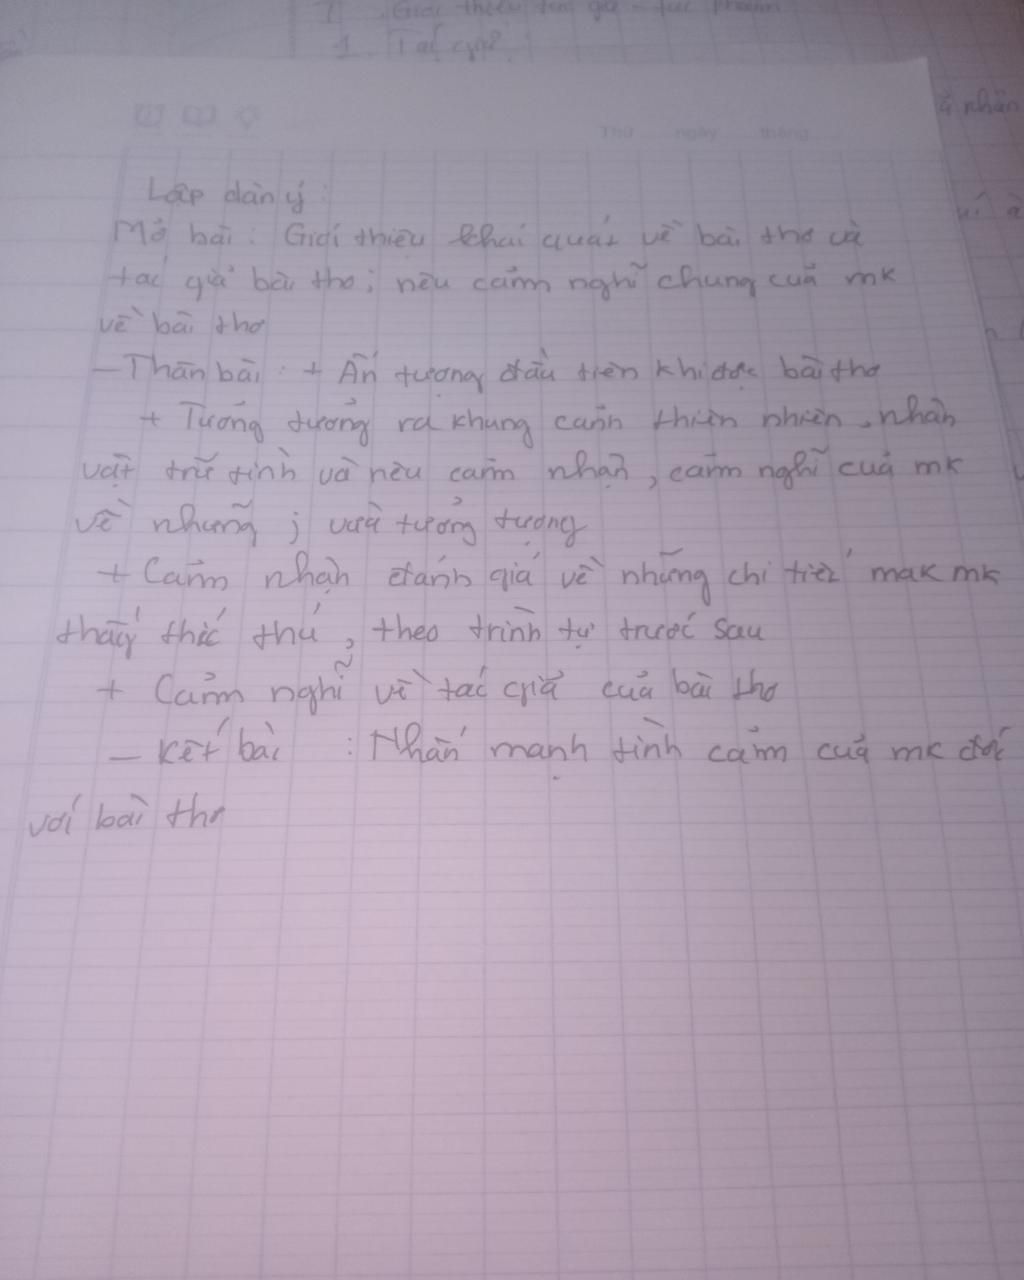 I. Giới thiệu tác giả - tác phẩm
1. Tác giả:
ả nhân
Thứ ngày tháng
Lập dàn ý:
Mở bài: Giới thiệu khái quát về bài thơ và
tác giả bài thơ; nêu cảm nghĩ chung của mk
về bài thơ
– Thân bài: + Ấn tượng đầu tiên khi đọc bài thơ
+ Tưởng tượng ra khung cảnh thiên nhiên, nhân
vật trữ tình và nêu cảm nhận, cảm nghĩ của mk
về những j vừa tưởng tượng
+ Cảm nhận đánh giá về những chi tiết mak mk
thấy thíc thú, theo trình tự trước sau
+ Cảm nghĩ về tác giả của bài thơ
– Kết bài : Nhấn mạnh tình cảm của mk đối
với bài thơ